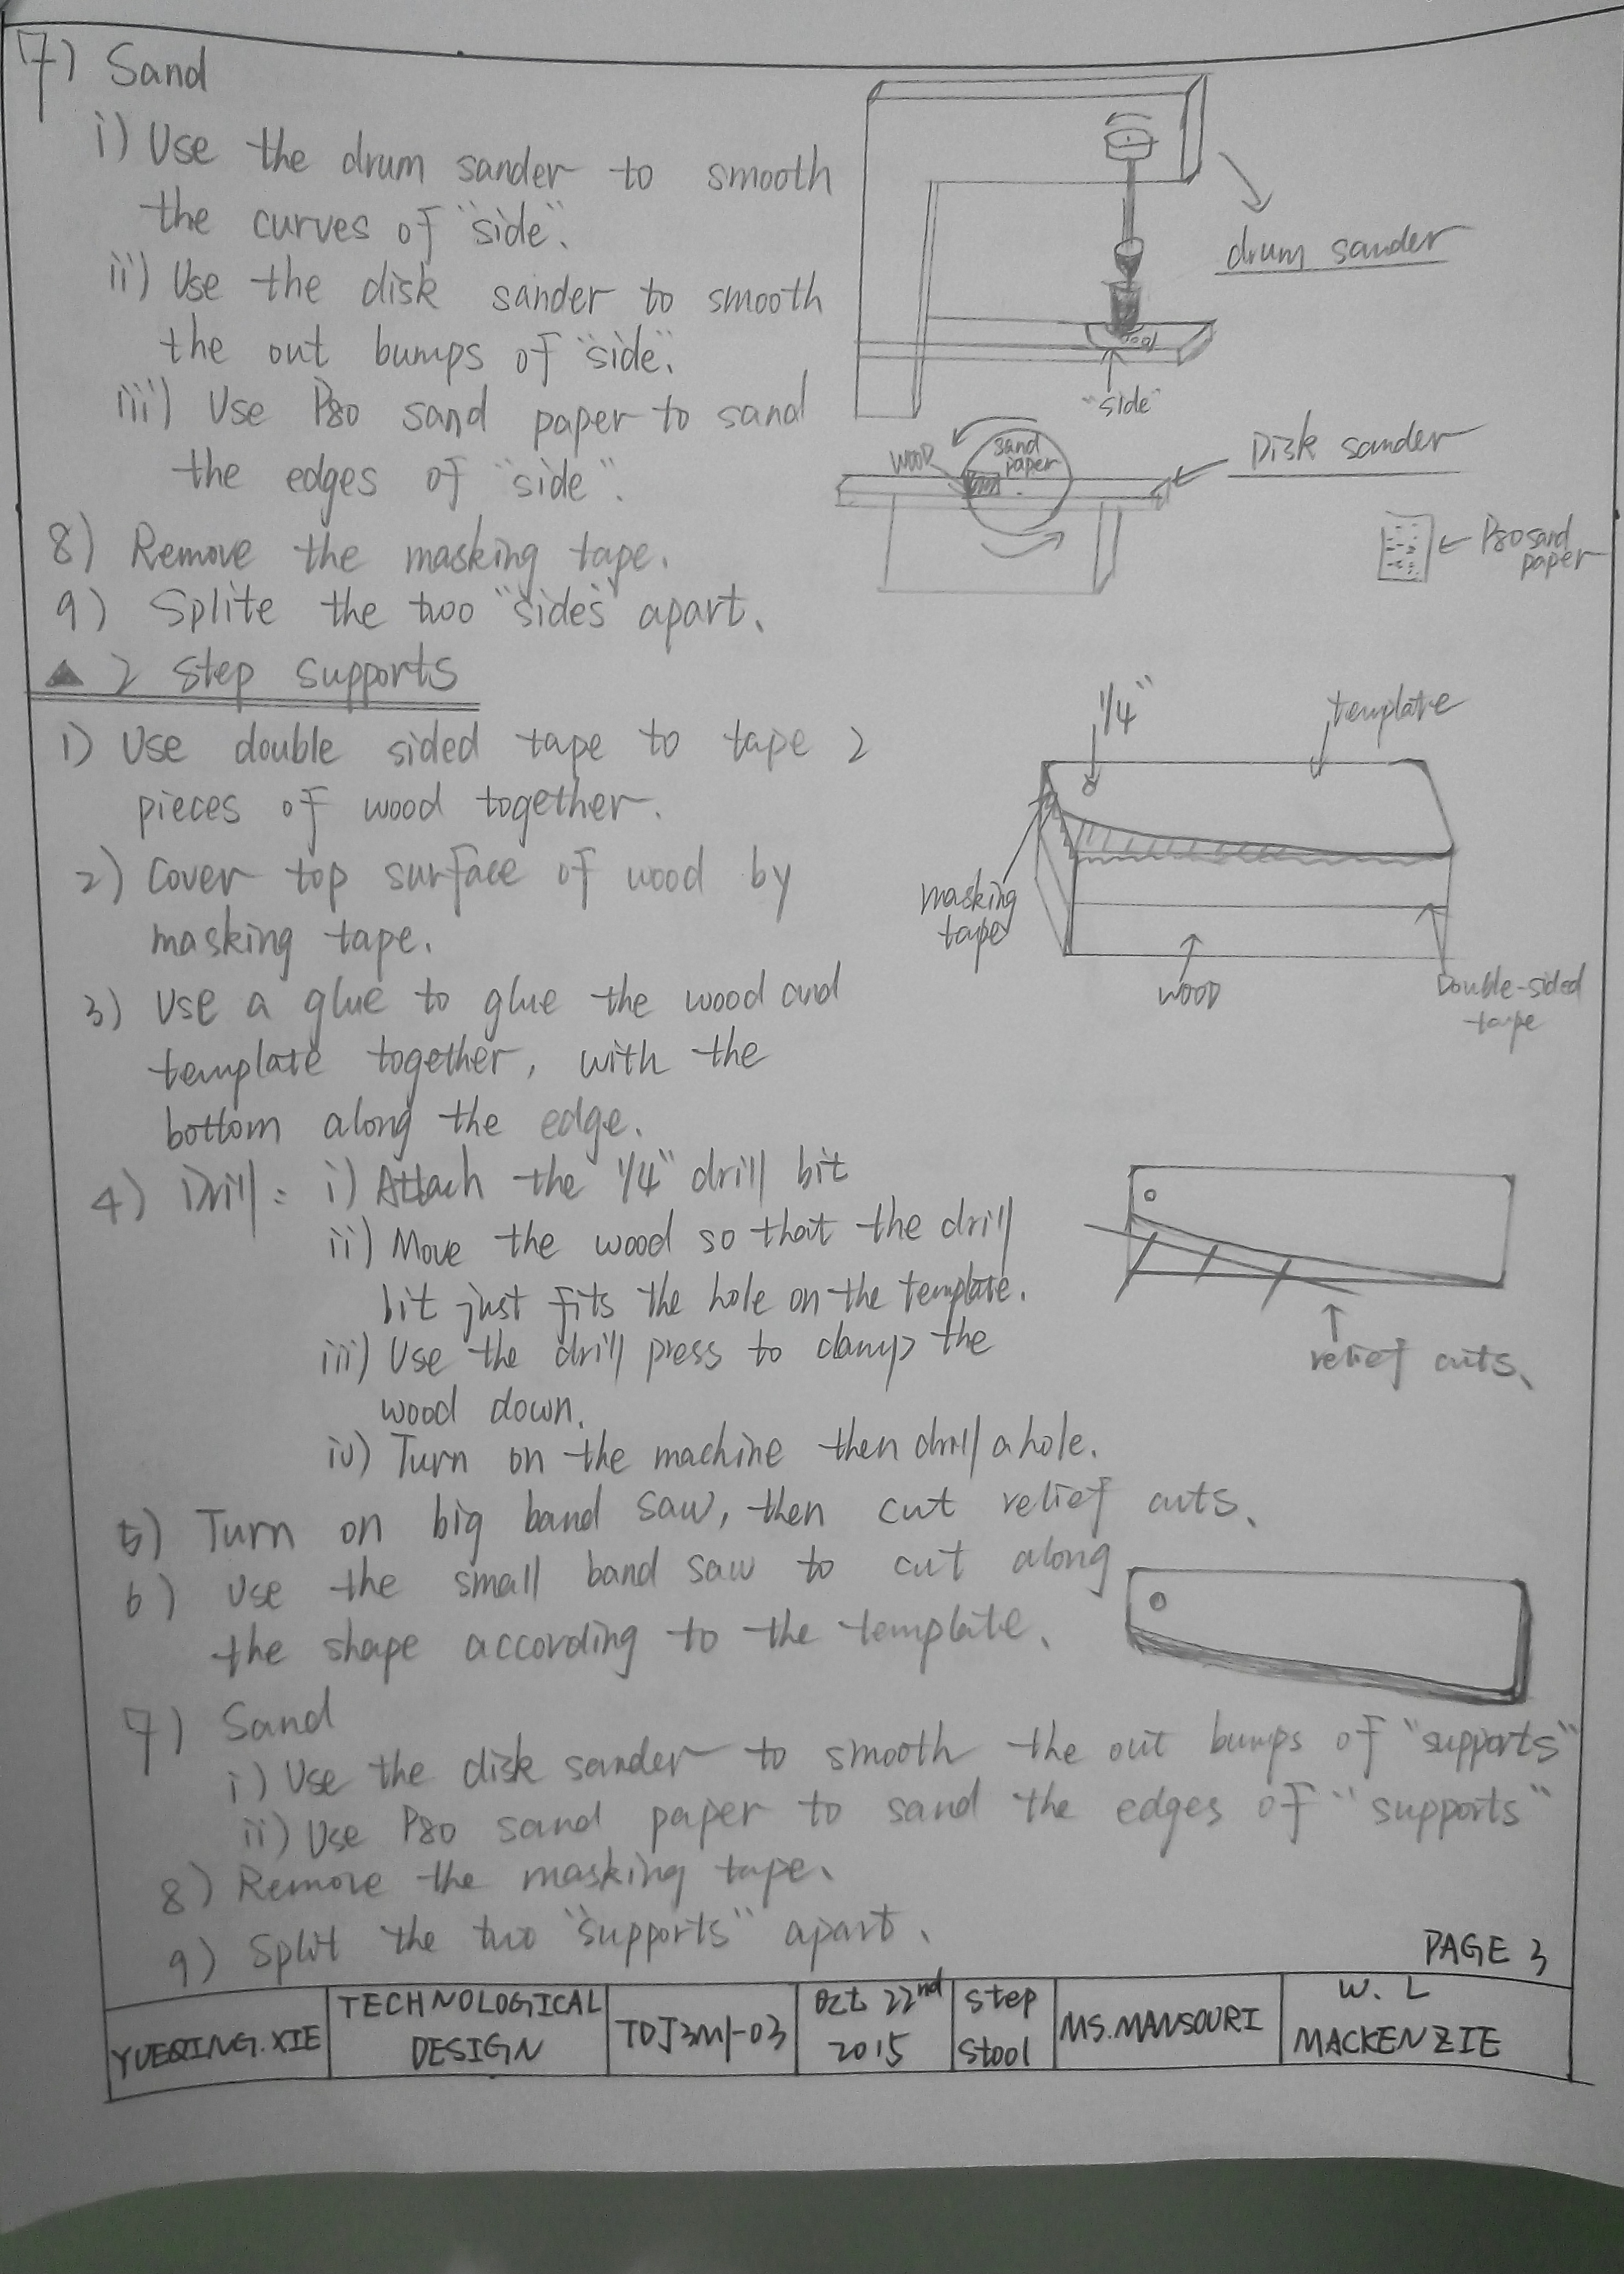 7) Sand
i) Use the drum sander to smooth
the curves of "side".
ii) Use the disk sander to smooth
the out bumps of "side".
iii) Use P80 sand paper to sand
the edges of "side".
8) Remove the masking tape.
9) Splite the two "sides" apart.
drum sander
"side"
wood
sand
paper
Disk sander
P80 sand
paper
▲ 2 Step Supports
1) Use double sided tape to tape 2
pieces of wood together.
2) Cover top surface of wood by
masking tape.
3) Use a glue to glue the wood and
template together, with the
bottom along the edge.
1/4"
template
masking
tape
wood
Double-sided
tape
4) Drill: i) Attach the 1/4" drill bit
ii) Move the wood so that the drill
bit just fits the hole on the template.
iii) Use the drill press to clamp the
wood down.
iv) Turn on the machine then drill a hole.
relief cuts.
5) Turn on big band saw, then cut relief cuts.
6) Use the small band saw to cut along
the shape according to the template.
7) Sand
i) Use the disk sander to smooth the out bumps of "supports"
ii) Use P80 sand paper to sand the edges of "supports"
8) Remove the masking tape.
9) Split the two "supports" apart.
PAGE 3
YUEQING.XIE
TECHNOLOGICAL
DESIGN
TDJ3M1-03
Oct 22nd
2015
Step
Stool
MS.MANSOURI
W. L
MACKENZIE